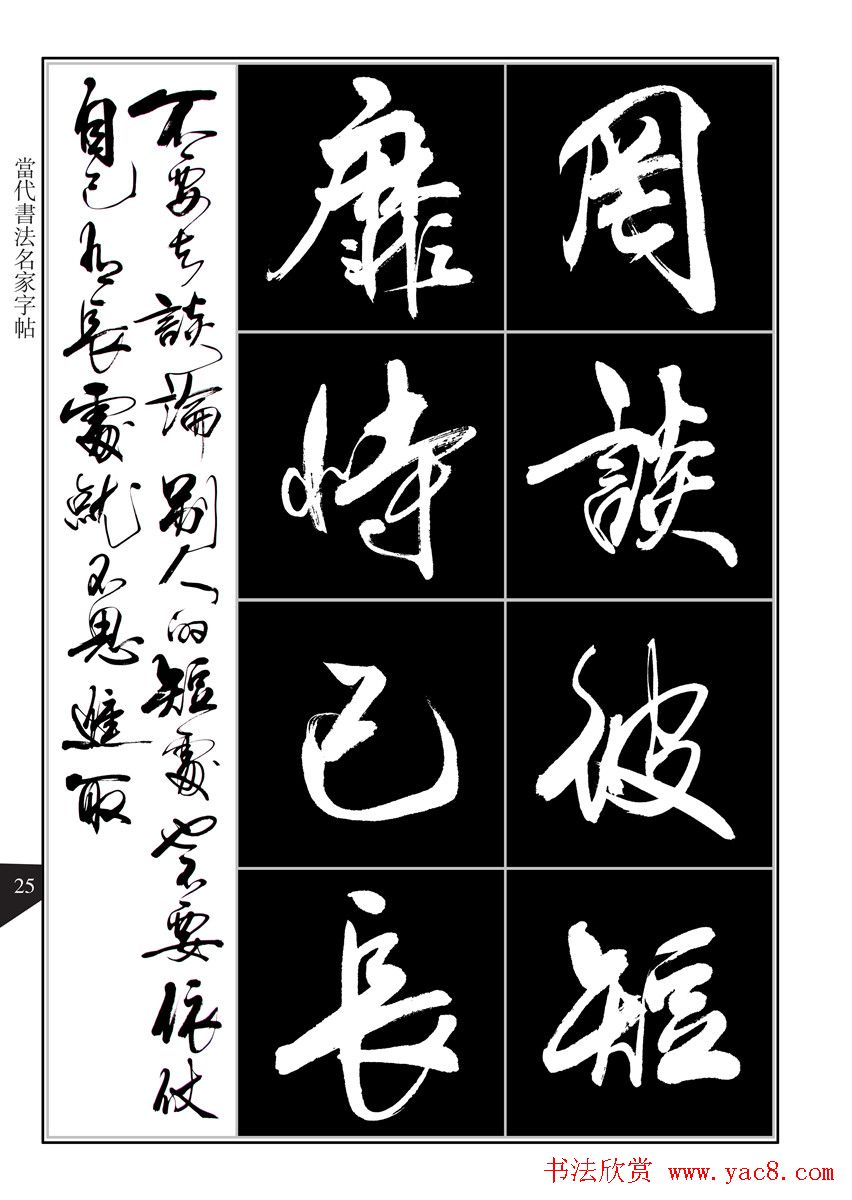 罔談彼短
靡恃己長
不要去談論別人的短處也不要依仗
自己有長處就不思進取
當代書法名家字帖
25
书法欣赏 www.yac8.com